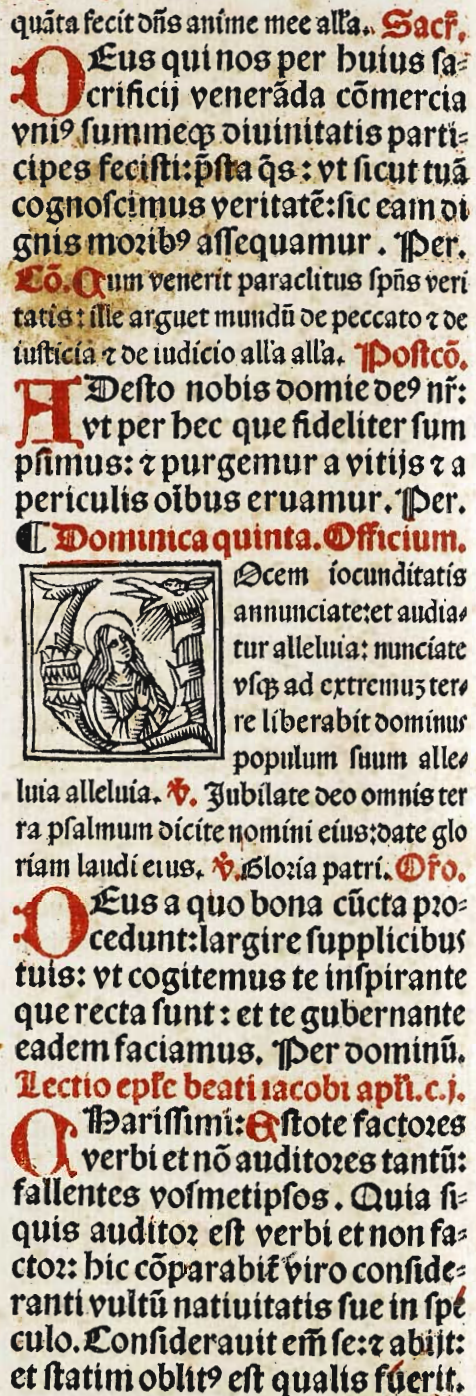 quãta fecit dñs anime mee alľa. Sacř.
DEus qui nos per huius ſa⸗
crificij venerãda cõmercia
vniꝰ ſummeqꝫ diuinitatis parti⸗
cipes feciſti: p̃ſta q̃s: vt ſicut tuã
cognoſcimus veritatẽ: ſic eam di
gnis moꝛibꝰ aſſequamur. Per.
Cõ. Cum venerit paraclitus ſpũs veri
tatis: ille arguet mundũ de peccato ⁊ de
iuſticia ⁊ de iudicio alľa alľa. Poſtcõ.
ADeſto nobis domie deꝰ nr̃:
vt per hec que fideliter ſum
pſimus: ⁊ purgemur a vitijs ⁊ a
periculis oĩbus eruamur. Per.
¶ Dominica quinta. Officium.
VOcem iocunditatis
annunciate: et audia⸗
tur alleluia: nunciate
vſqꝫ ad extremuꝫ ter⸗
re liberabit dominus
populum ſuum alle⸗
luia alleluia. ℣. Jubilate deo omnis ter
ra pſalmum dicite nomini eius: date glo
riam laudi eius. ℣. Gloꝛia patri. Ořo.
DEus a quo bona cũcta pꝛo⸗
cedunt: largire ſupplicibus
tuis: vt cogitemus te inſpirante
que recta ſunt: et te gubernante
eadem faciamus. Per dominũ.
Lectio epľe beati iacobi apľi. c. j.
CHariſſimi: Eſtote factoꝛes
verbi et nõ auditoꝛes tantũ:
fallentes voſmetipſos. Quia ſi⸗
quis auditoꝛ eſt verbi et non fa⸗
ctoꝛ: hic cõparabiť viro conſide⸗
ranti vultũ natiuitatis ſue in ſpé
culo. Conſiderauit em̃ ſe: ⁊ abijt:
et ſtatim oblitꝰ eſt qualis fúerit.